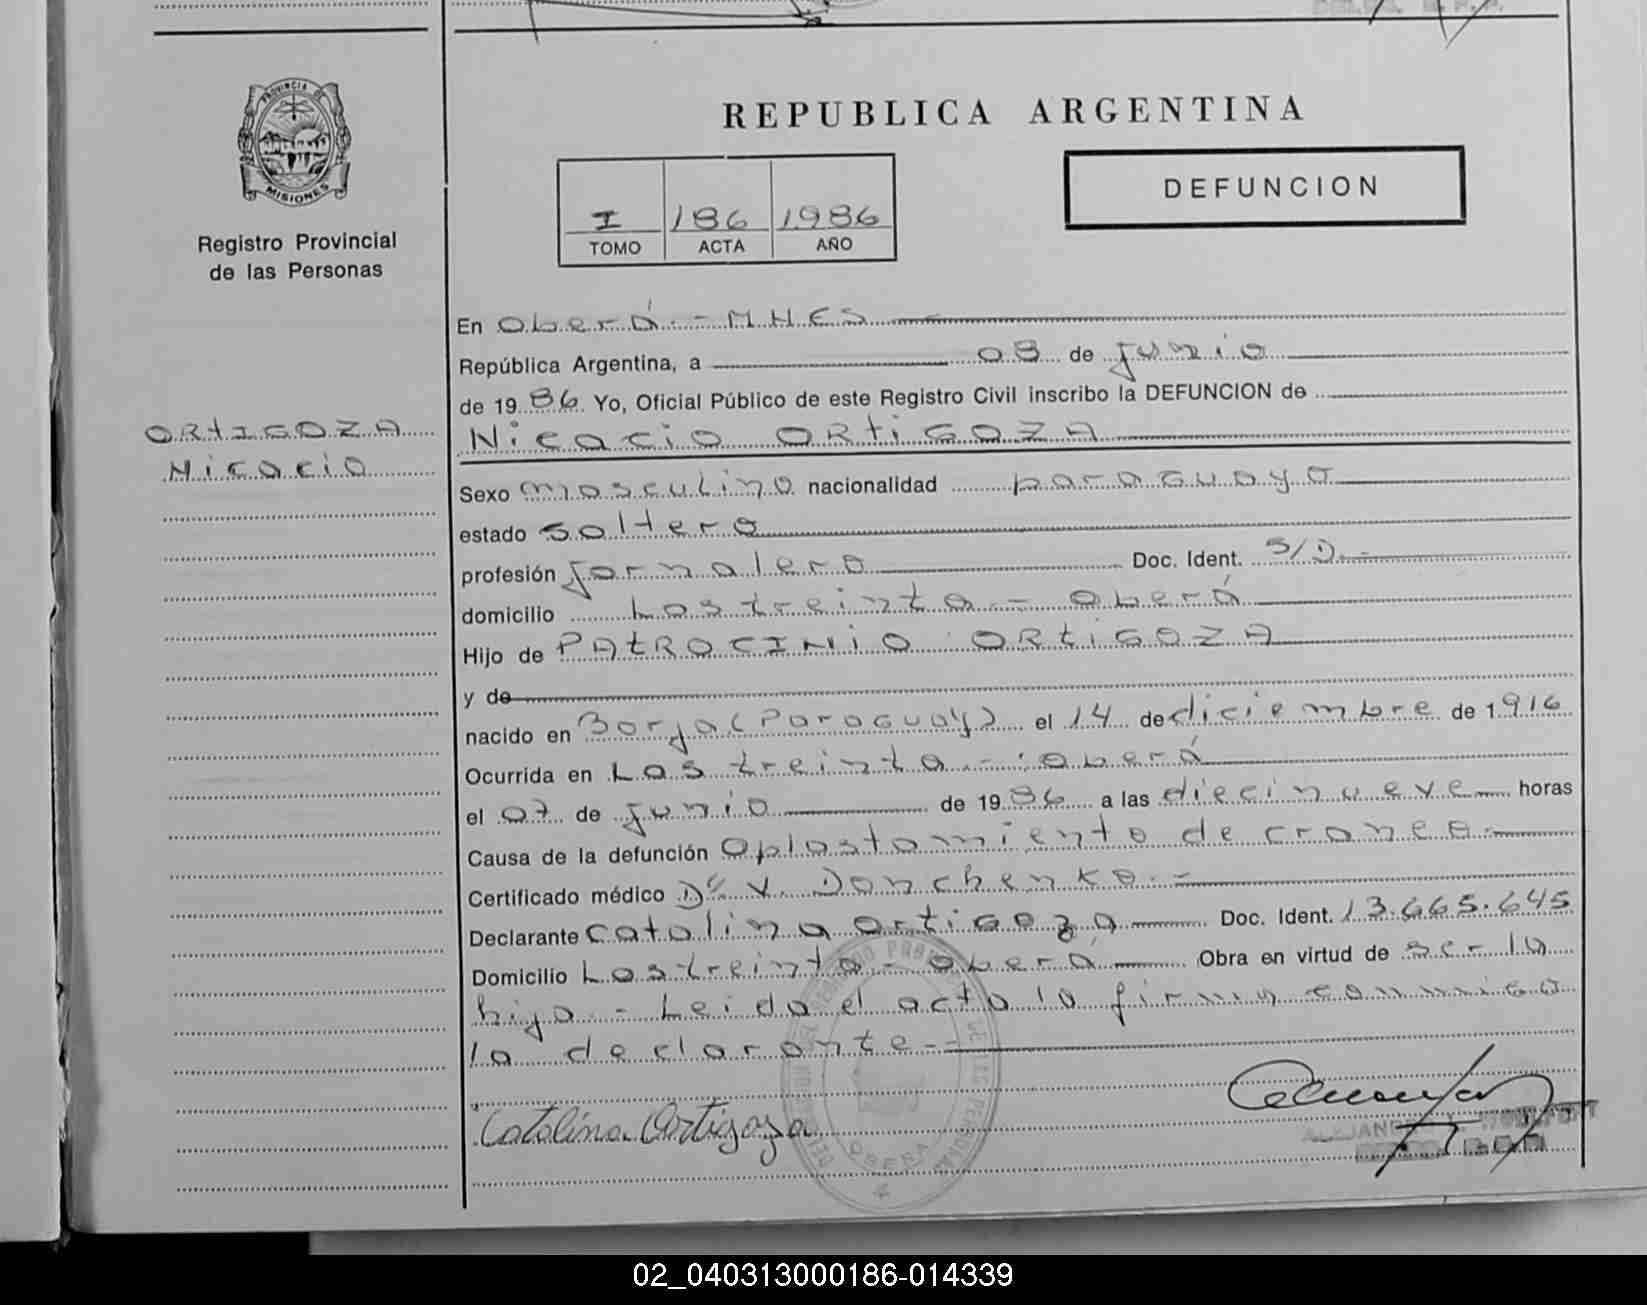 PROVINCIA DE
MISIONES
Registro Provincial
de las Personas
ORTIGOZA
Nicacio
REPUBLICA ARGENTINA
I 186 1986
TOMO ACTA AÑO
DEFUNCION
En Oberá - MNES
República Argentina, a 08 de junio
de 1986 Yo, Oficial Público de este Registro Civil inscribo la DEFUNCION de
Nicacio ORTIGOZA
Sexo masculino nacionalidad paraguaya
estado soltero
profesión jornalero Doc. Ident. S/D.-
domicilio Los treinta - Oberá
Hijo de PATROCINIO ORTIGOZA
y de
nacido en Borja (Paraguay) el 14 de diciembre de 1916
Ocurrida en Los treinta - Oberá
el 07 de junio de 1986 a las diecinueve horas
Causa de la defunción Aplastamiento de craneo.-
Certificado médico Dr V. Donchenko.-
Declarante Catalina Ortigoza Doc. Ident. 13.665.645
Domicilio Los treinta - Oberá Obra en virtud de ser la
hija.- Leida el acta la firma conmigo
la declarante.-
Catalina Ortigoza
OBERA
02_040313000186-014339